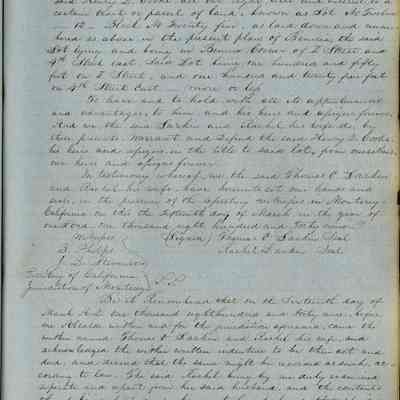 said Henry D. Cooke all our right, title and interest to a
certain tract or parcel of land, known as Lot No Twelve
12 — Block No Twenty five, as laid down and num-
bered as above in the present plan of Benicia, the said
Lot lying and being in Benicia Corner of I Street and
4th Street east. Said Lot being one hundred and fifty
feet on I Street, and one hundred and twenty five feet
on 4th Street East — more or less
To have and to hold with all its appurtenances
and advantages, to him, and his heirs and assigns forever.
And we the said Larkin and Rachel his wife do, by
these presents, warrant and defend the said Henry D. Cooke
his heirs and assigns, in the title to said lot, from ourselves,
our heirs and assigns forever.
In testimony whereof, we, the said Thomas O. Larkin
and Rachel his wife, have hereunto set our hands and
seals, in the presence of the witnesses in Monterey
California on this the day of March in the year of
our Lord, one thousand eight hundred and forty nine.
Witnesses (Signed) Thomas O. Larkin Seal
B. Phelps Rachel Larkin Seal
J. D. Stevenson
Territory of California
Jurisdiction of Monterey S.S.
Be it Remembered that on the day of
March A.D. one thousand eight hundred and forty nine, before
me Alcalde within and for the jurisdiction aforesaid, came the
within named Thomas O. Larkin and Rachel his wife, and
acknowledged the within written indenture to be their act and
deed, and desired that the same might be recorded as such, ac-
cording to law. The said Rachel being by me duly examined
separate and apart from her said husband, and the contents